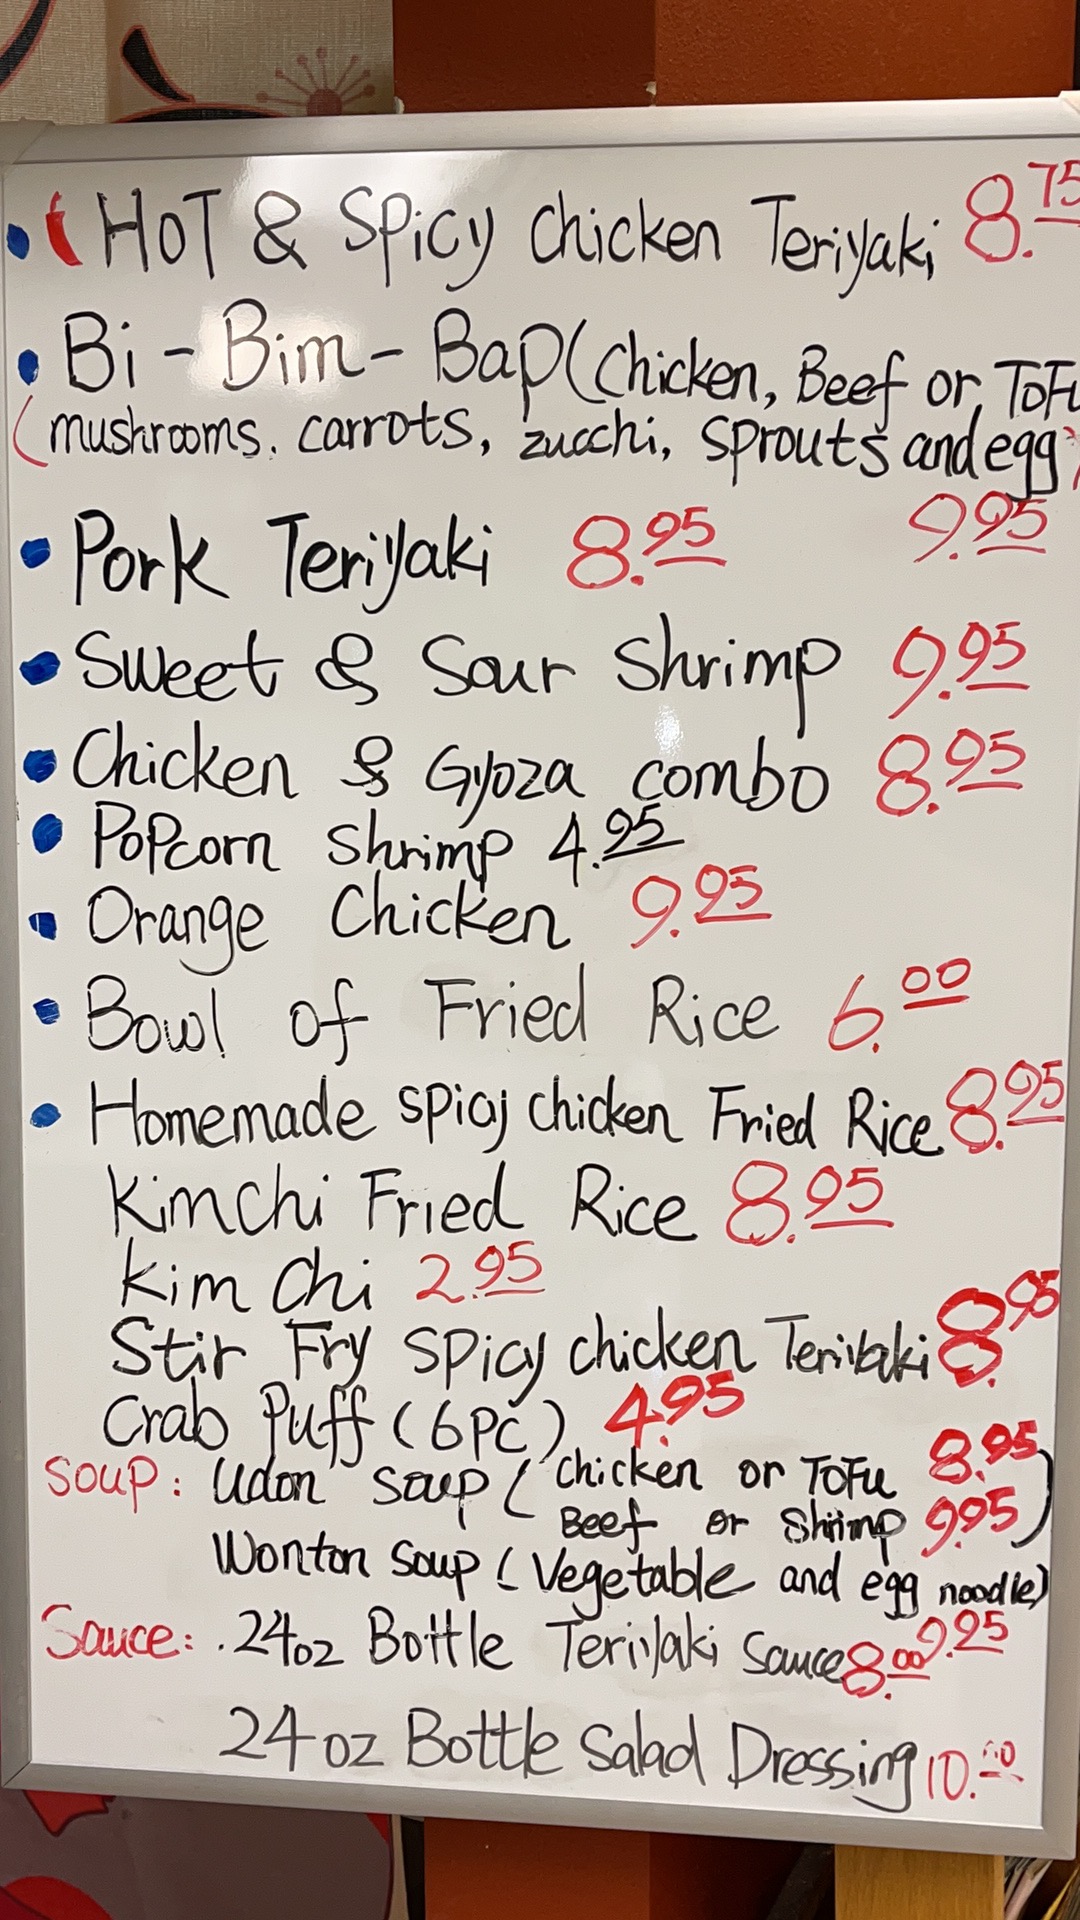 • HOT & Spicy Chicken Teriyaki 8.75
• Bi - Bim - Bap (Chicken, Beef or ToFu
(mushrooms. carrots, zucchi, sprouts and egg)
9.95
• Pork Teriyaki 8.95
• Sweet & Sour Shrimp 9.95
• Chicken & Gyoza combo 8.95
• PoPcorn Shrimp 4.95
• Orange Chicken 9.95
• Bowl of Fried Rice 6.00
• Homemade spicy chicken Fried Rice 8.95
Kimchi Fried Rice 8.95
Kim chi 2.95
Stir Fry spicy chicken Teriyaki 8.95
Crab Puff (6pc) 4.95
Soup: Udon Soup (Chicken or ToFu 8.95
Beef or Shrimp 9.95)
Wonton Soup (Vegetable and egg noodle)
9.25
Sauce: . 24oz Bottle Teriyaki Sauce 8.00
24 oz Bottle Salad Dressing 10.00